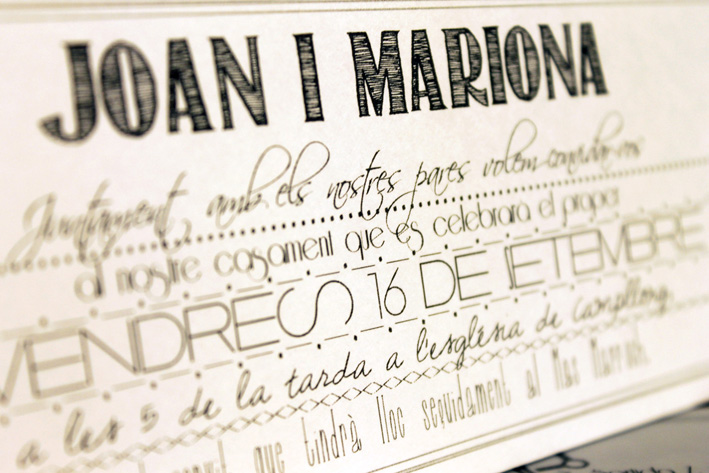 JOAN I MARIONA
Juntament, amb els nostres pares volem convidar-vos
al nostre casament que es celebrarà el proper
VENDRES 16 DE SETEMBRE
a les 5 de la tarda a l'església de Campllong
que tindrà lloc seguidament al Mas Marroch.